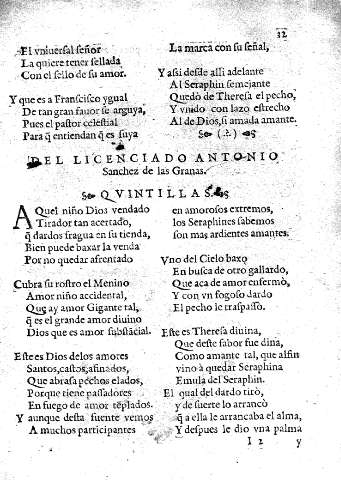 32
El vniuersal señor
La quiere tener sellada
Con el sello de su amor.
Y que es a Francisco ygual
De tan gran fauor se arguya,
Pues el pastor celestial
Para q̃ entiendan q̃ es suya
La marca con su señal,
Y assi desde alli adelante
Al Seraphin semejante
Quedò de Theresa el pecho,
Y vnido con lazo estrecho
Al de Dios, si amada amante.
DEL LICENCIADO ANTONIO
Sanchez de las Granas.
QVINTILLAS.
AQuel niño Dios vendado
Tirador tan acertado,
q̃ dardos fragua en su tienda,
Bien puede baxar la venda
Por no quedar afrentado
Cubra su rostro el Menino
Amor niño accidental,
Que ay amor Gigante tal,
q̃ es el grande amor diuino
Dios que es amor substãcial.
Este es Dios de los amores
Santos, castos, afinados,
Que abrasa pechos elados,
Porque tiene passadores
En fuego de amor tẽplados.
Y aunque desta fuente vemos
A muchos participantes
en amorosos extremos,
los Seraphines sabemos
son mas ardientes amantes.
Vno del Cielo baxò
En busca de otro gallardo,
Que aca de amor enfermò,
Y con vn fogoso dardo
El pecho le traspasso.
Este es Theresa diuina,
Que deste fabor fue dina,
Como amante tal, que alfin
vino à quedar Seraphina
Emula del Seraphin.
El qual del dardo tirò,
y de suerte lo arrancò
q̃ a ella le arrancaba el alma,
Y despues le dio vna palma
I 2 y